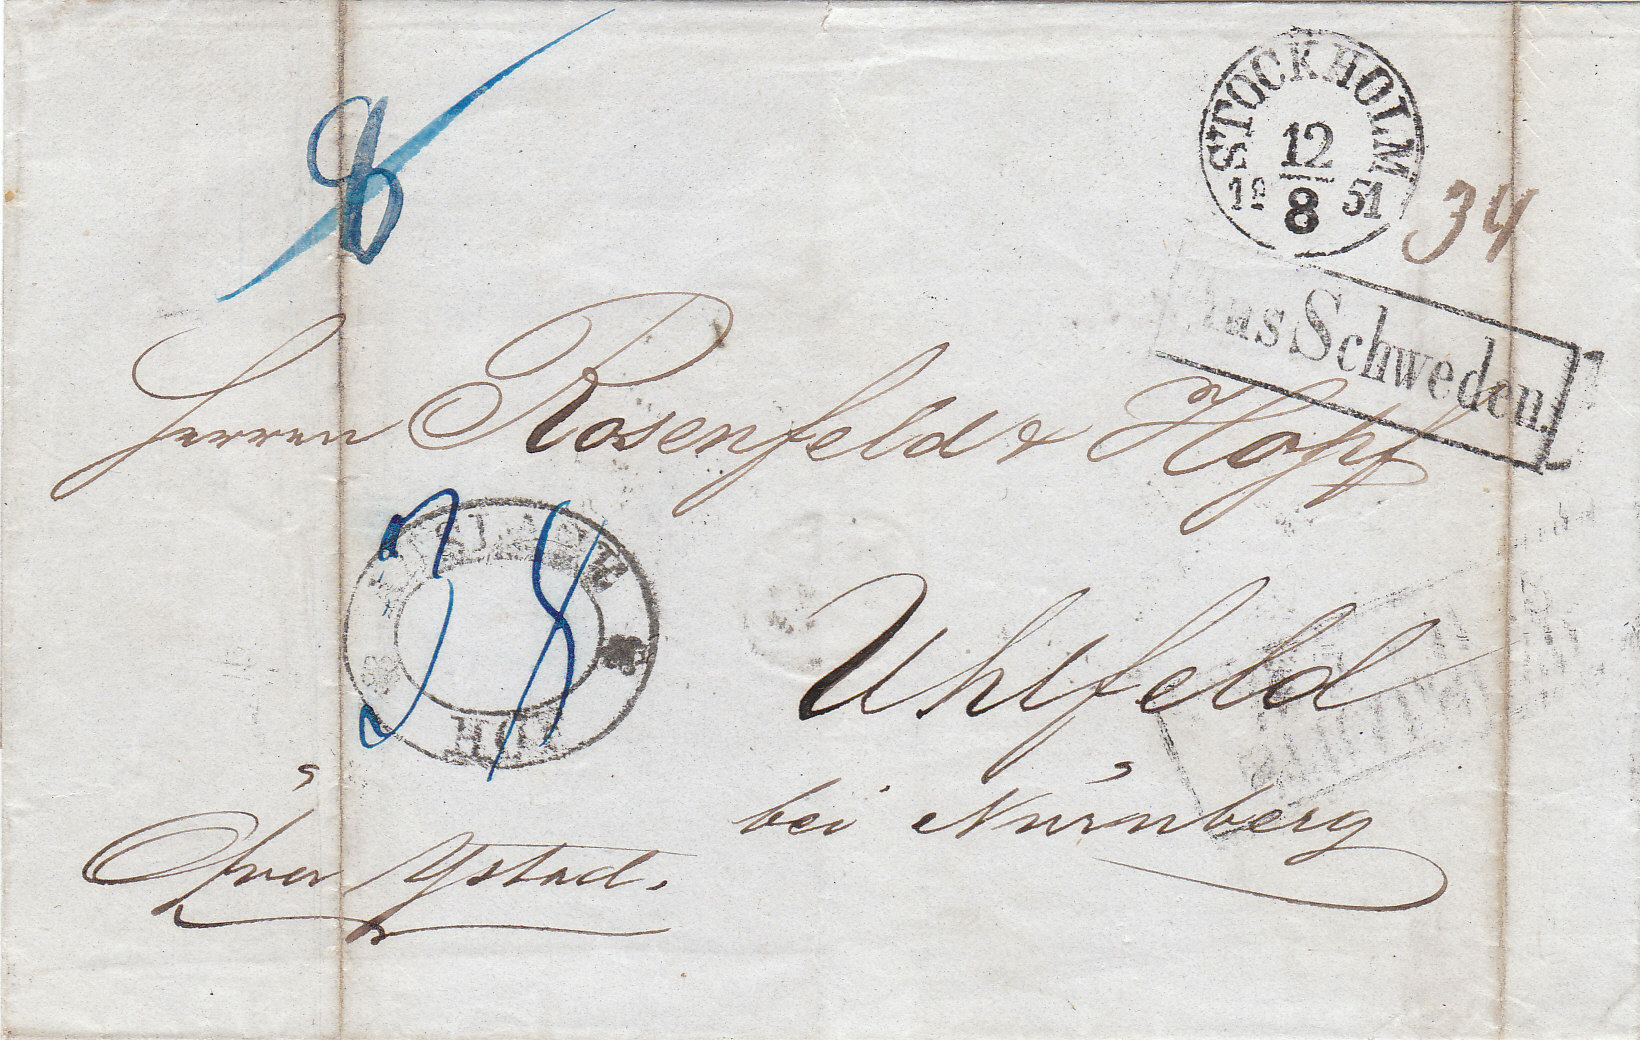 8
STOCKHOLM
12
8
51
34
Aus Schweden.
Herren Rosenfeld & Hopf
HOF
Uhlfeld
bei Nürnberg
Öfver Ystad.